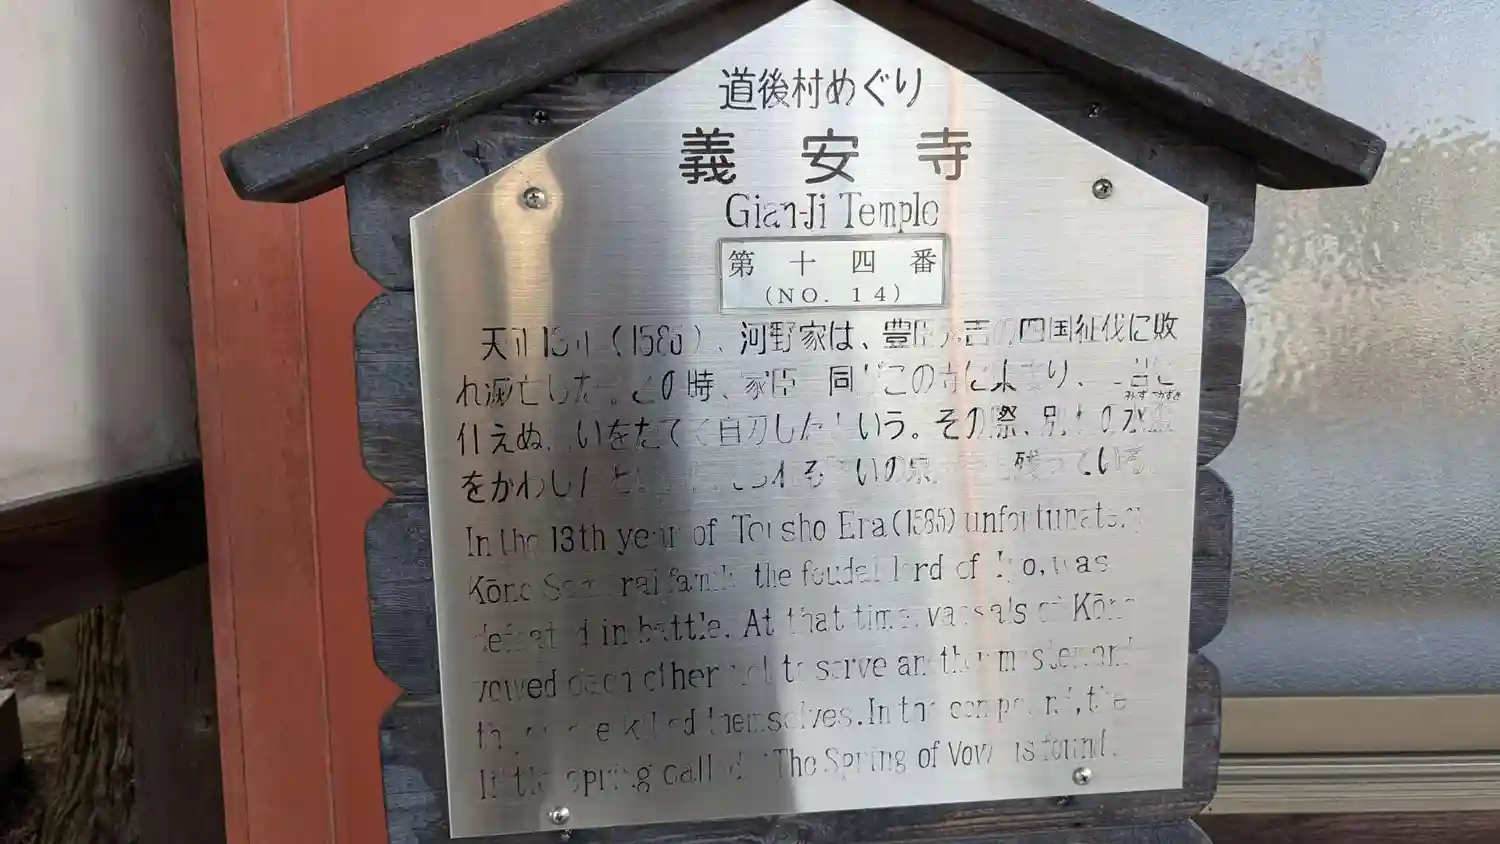 道後村めぐり
義安寺
Gian-Ji Temple
第十四番
(NO. 14)
(1585)、河野家は、豊臣秀吉の四国征伐に敗
れ滅亡した。この時、家臣一同がこの寺に
仕えぬ いをたてて自刃したという。その際、別れの水盃
みずさかずき
をかわしたと いの泉が 残っている。
In the 13th year of Era (1585) unfortunately
Kōno Samurai family the feudal lord of Iyo, was
defeated in battle. At that time, vassals of Kōno
vowed each other not to serve another master and
killed themselves. In the compound, the
little spring called "The Spring of Vow" is found.